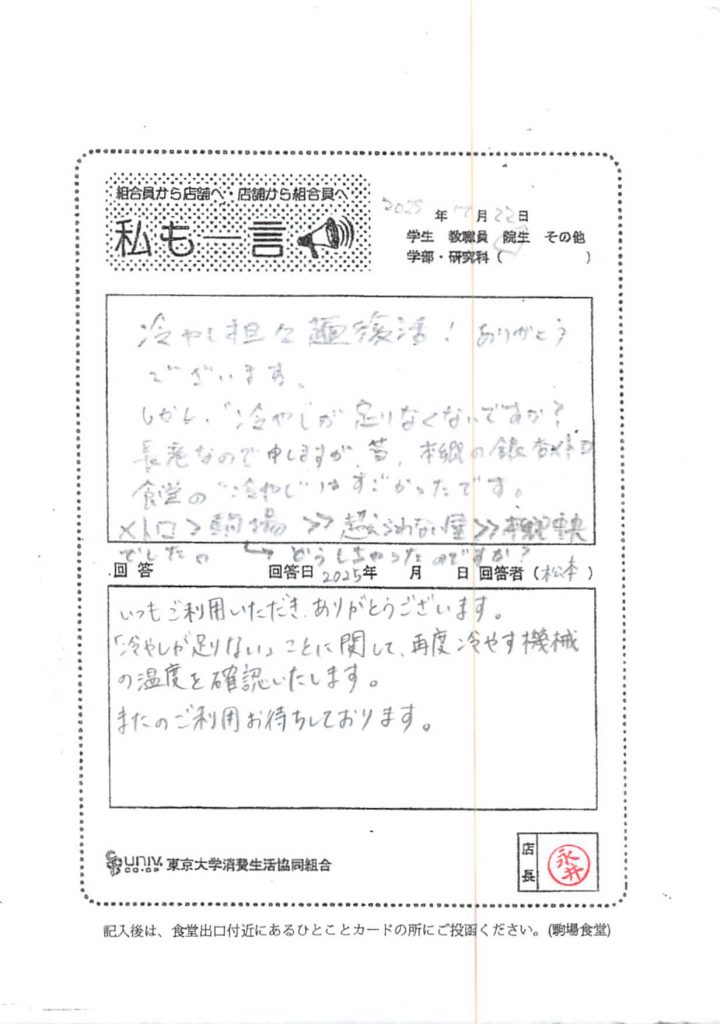 組合員から店舗へ・店舗から組合員へ
私も一言
2025年 月22日
学生 教職員 院生 その他
学部・研究科( )
冷やし担々麺復活! ありがとう
ございます。
しかし、"冷やし"が足りなくないですか?
長老なので申しますが、昔、本郷の銀杏メトロ
食堂の"冷やし"はすごかったです。
メトロ > 駒場 >> 超えられない壁 >> 本郷中央
でした。 どうしちゃったのですか?
回答 回答日 2025年 月 日 回答者(松本)
いつもご利用いただき、ありがとうございます。
「冷やしが足りない」ことに関して、再度冷やす機械
の温度を確認いたします。
またのご利用お待ちしております。
univ.
CO-OP
東京大学消費生活協同組合
店長
永井
記入後は、食堂出口付近にあるひとことカードの所にご投函ください。(駒場食堂)